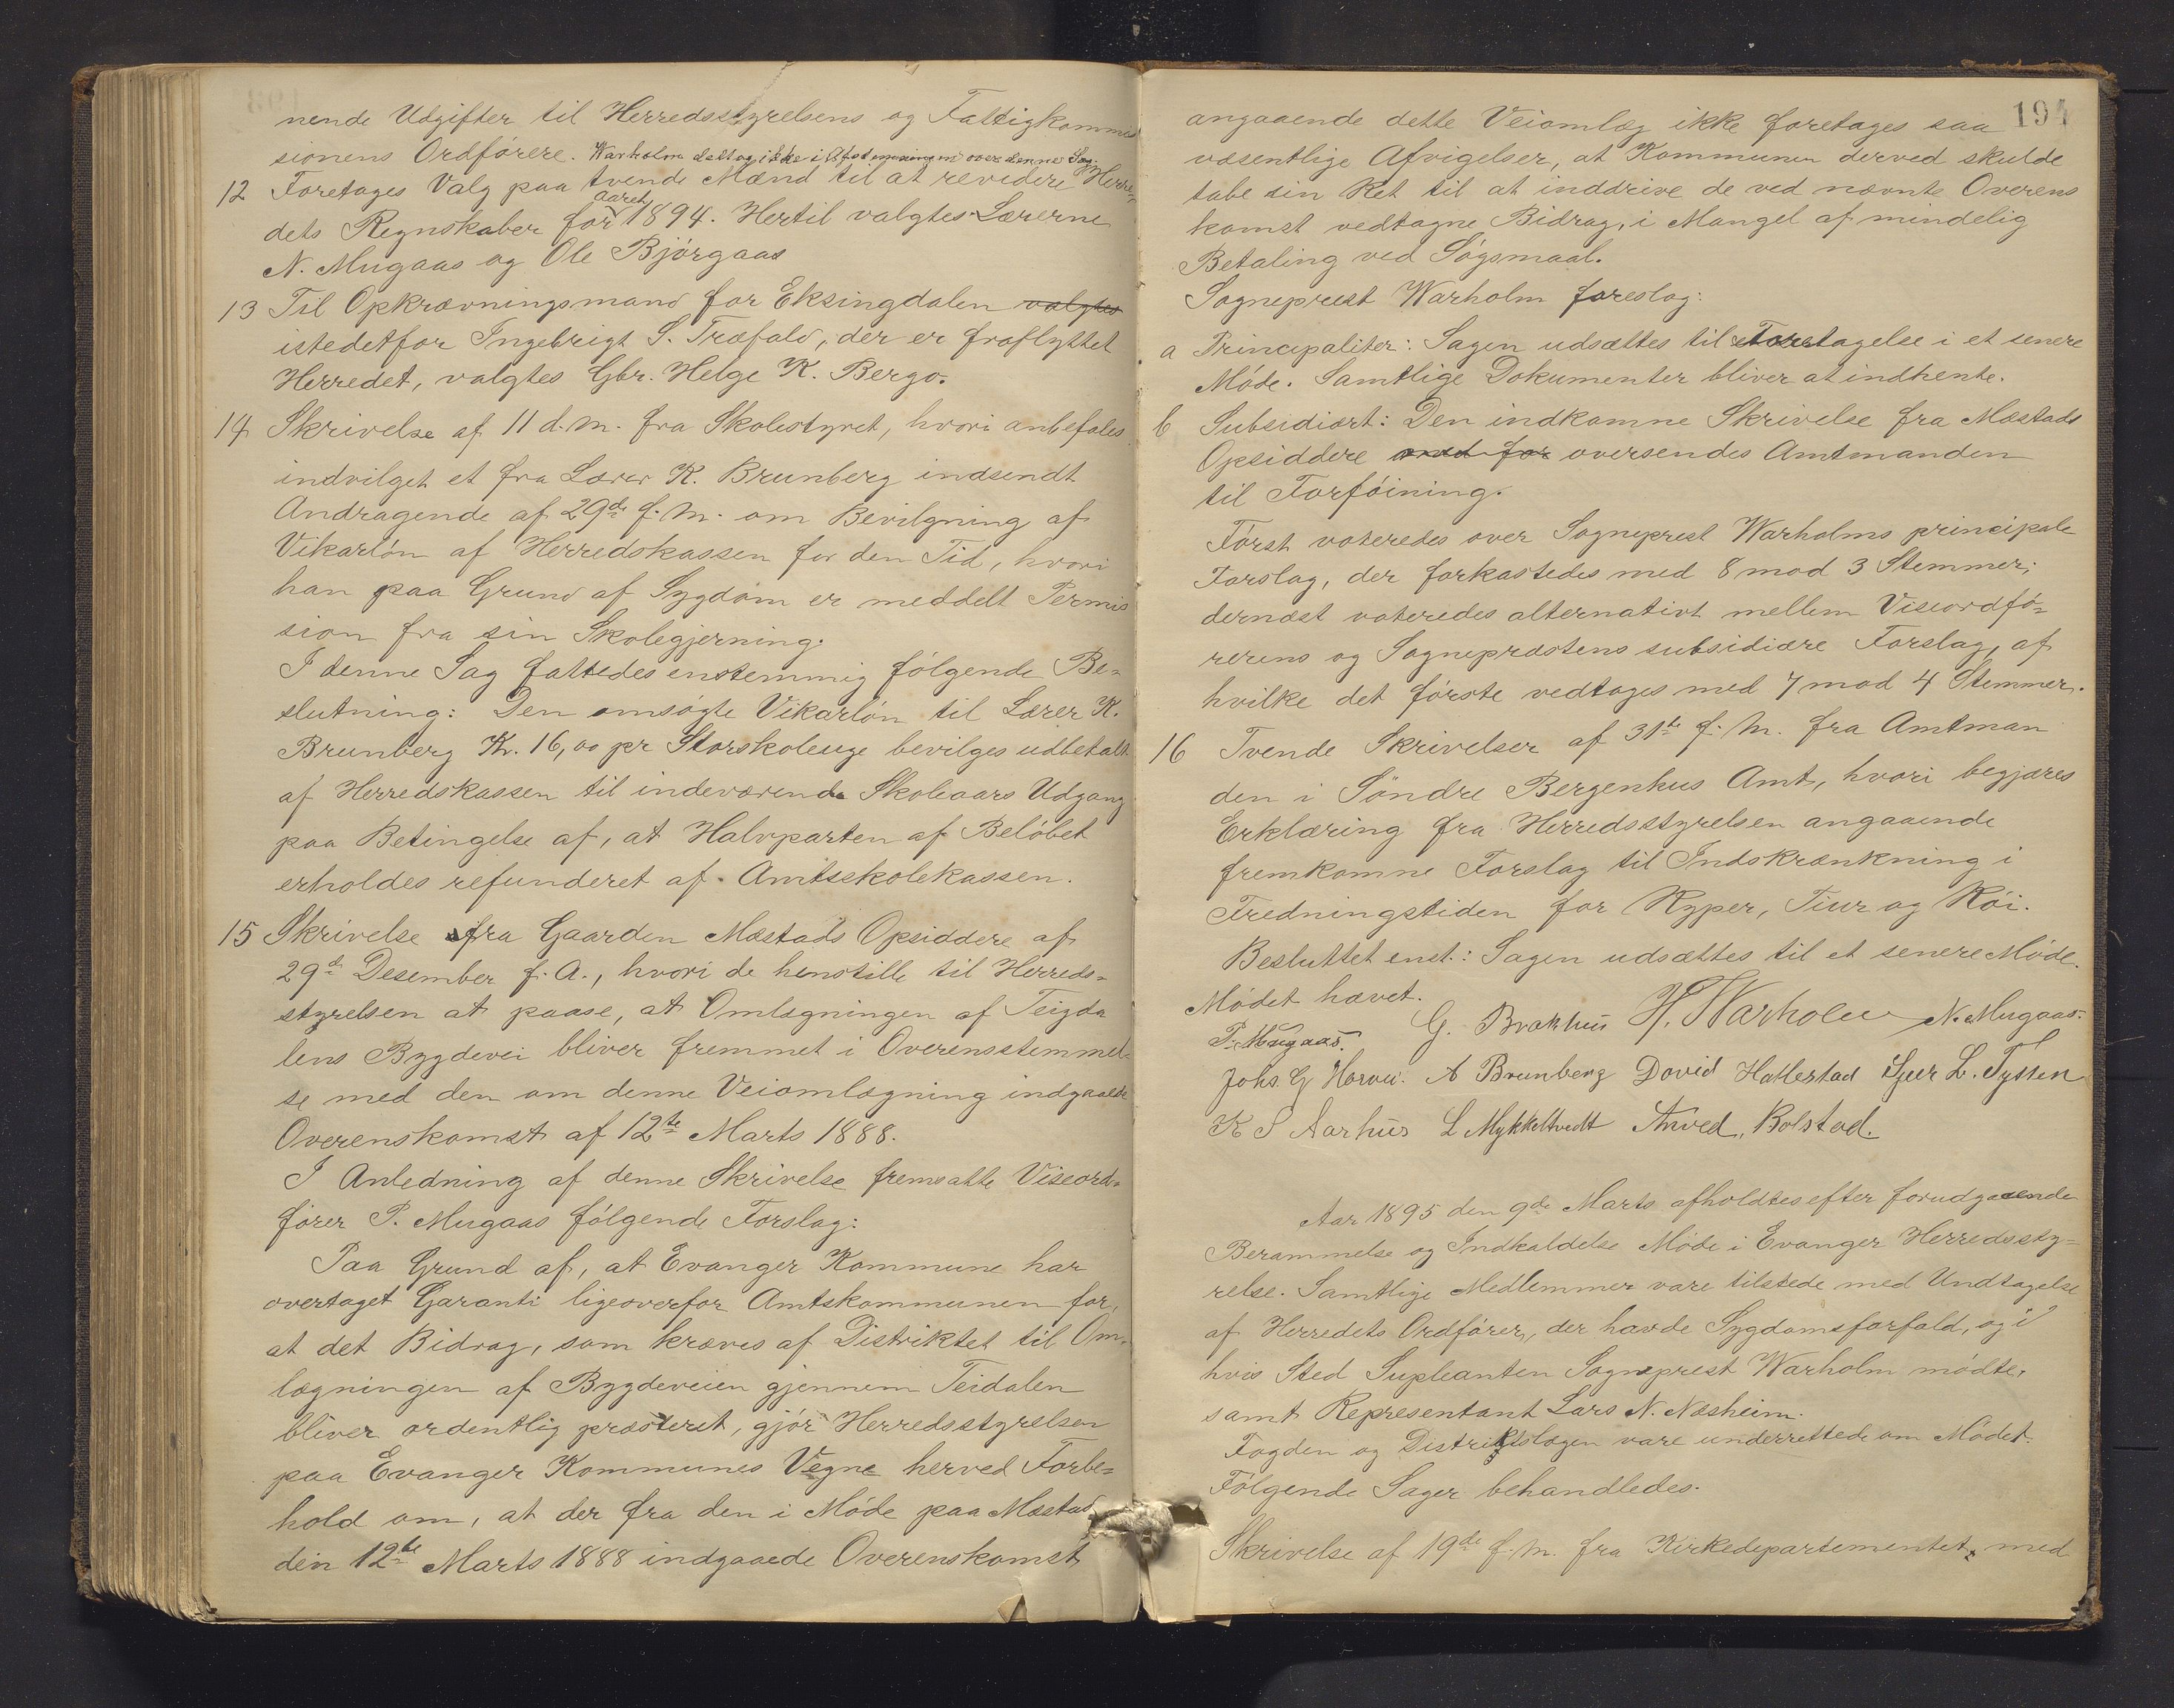 nende Udgifter til Herredsstyrelsens og Fattigkommis
sionens Ordførere. Warholm deltog ikke i Afstemningen over denne Sag.
12 Foretages Valg paa tvende Mænd til at revidere Herre-
dets Regnskaber for aaret 1894. Hertil valgtes Lærerne
N. Mugaas og Ole Bjørgaas
13 Til Opkrævningsmand for Eksingdalen valgtes
istedetfor Ingebrigt S. Træfald, der er fraflyttet
Herredet, valgtes Gbr. Helge K. Bergo.
14 Skrivelse af 11 d.M. fra Skolestyret, hvori anbefales
indvilget et fra Lærer K. Brunberg indsendt
Andragende af 29de f.M. om Bevilgning af
Vikarløn af Herredskassen for den Tid, hvori
han paa Grund af Sygdom er meddelt Permis
sion fra sin Skolegjerning.
I denne Sag fattedes enstemmig følgende Be-
slutning: Den omsøgte Vikarløn til Lærer K.
Brunberg Kr. 16,00 pr Storskoleuge bevilges udbetalt
af Herredskassen til indeværende Skoleaars Udgang
paa Betingelse af, at Halvparten af Beløbet
erholdes refunderet af Amtsskolekassen.
15 Skrivelse fra Gaarden Mæstads Opsiddere af
29de Desember f.A., hvori de henstille til Herreds-
styrelsen at paase, at Omlægningen af Teigda
lens Bygdevei bliver fremmet i Overensstemmel-
se med den om denne Veiomlægning indgaaede
Overenskomst af 12te Marts 1888.
I Anledning af denne Skrivelse fremsatte Viseord-
fører P. Mugaas følgende Forslag:
Paa Grund af, at Evanger Kommune har
overtaget Garanti ligeoverfor Amtskommunen for,
at det Bidrag, som kræves af Distriktet til Om-
lægningen af Bygdeveien gjennem Teidalen
bliver ordentlig præsteret, gjør Herredsstyrelsen
paa Evanger Kommunes Vegne herved Forbe-
hold om, at der fra den i Møde paa Mæstad
den 12te Marts 1888 indgaaede Overenskomst
194
angaaende dette Veiomlæg ikke foretages saa
væsentlige Afvigelser, at Kommunen derved skulde
tabe sin Ret til at inddrive de ved nævnte Overens
komst vedtagne Bidrag, i Mangel af mindelig
Betaling ved Søgsmaal.
Sogneprest Warholm foreslog:
a Principaliter: Sagen udsættes til Foretagelse i et senere
Møde. Samtlige Dokumenter bliver at indhente.
b Subsidiært: Den indkomne Skrivelse fra Mæstads
Opsiddere med for oversendes Amtmanden
til Forføining.
Først voteredes over Sogneprest Warholms principale
Forslag, der forkastedes med 8 mod 3 Stemmer;
dernæst voteredes alternativt mellem Viseordfø-
rerens og Sogneprestens subsidiære Forslag, af
hvilke det første vedtoges med 7 mod 4 Stemmer.
16 Tvende Skrivelser af 31te f.M. fra Amtman
den i Søndre Bergenhus Amt, hvori begjæres
Erklæring fra Herredsstyrelsen angaaende
fremkomne Forslag til Indskrænkning i
Fredningstiden for Ryper, Tiur og Røi.
Besluttet enst.: Sagen udsættes til et senere Møde.
Mødet hævet.
P. Mugaas. G. Brakhus H. Warholm N. Mugaas.
Johs. G Horvei. A Brunberg David Hallestad Sjur L. Tyssen
K S Aarhus L Mykkeltvedt Anved. Bolstad.
Aar 1895 den 9de Marts afholdtes efter forudgaaende
Berammelse og Indkaldelse Møde i Evanger Herredssty-
relse. Samtlige Medlemmer vare tilstede med Undtagelse
af Herredets Ordfører, der havde Sygdomsforfald, og i
hvis Sted Supleanten Sogneprest Warholm mødte,
samt Representant Lars N. Næsheim.
Fogden og Distriktslægen vare underrettede om Mødet.
Følgende Sager behandledes.
Skrivelse af 19de f.M. fra Kirkedepartementet, med